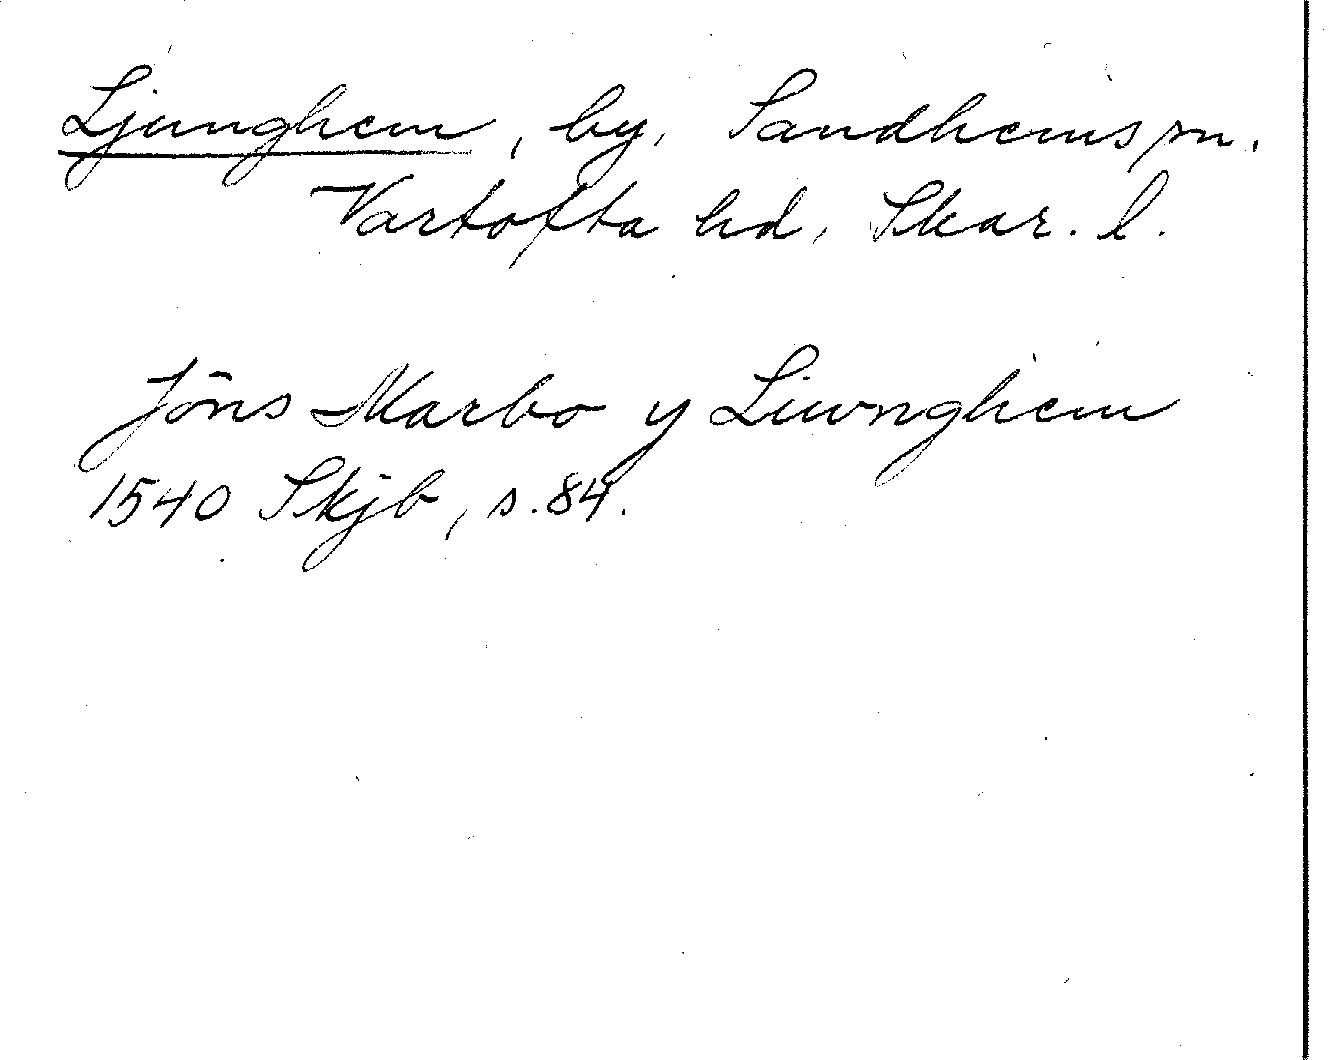 Ljunghem, by, Sandhems sn.
Vartofta hd, Skar. l.
Jöns Marbo y Liwnghem
1540 Skjb, s. 84.